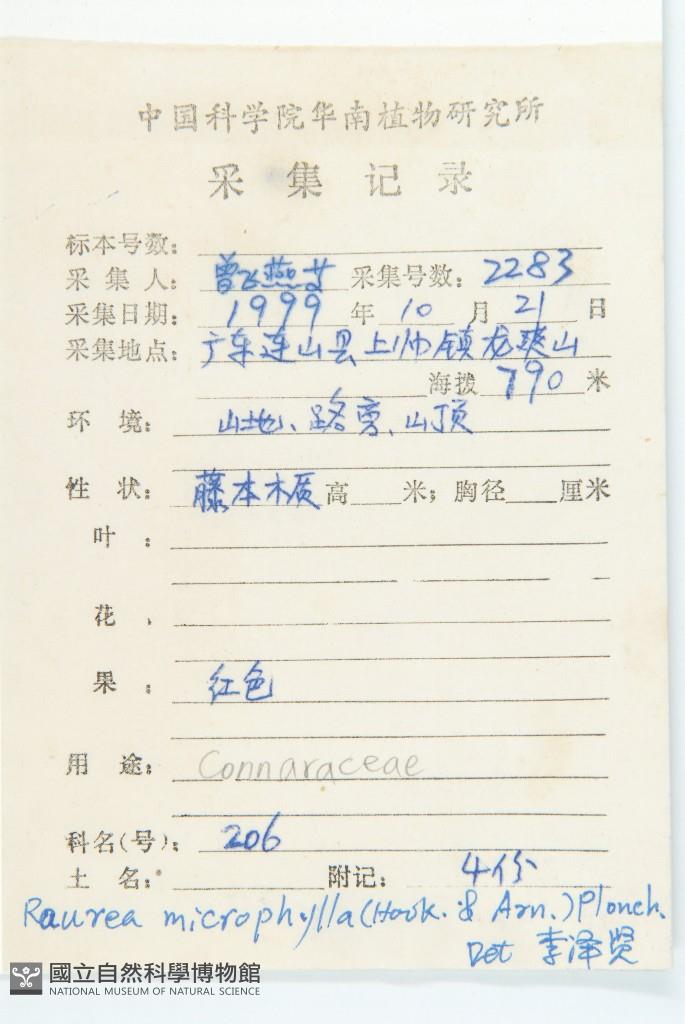 中国科学院华南植物研究所
采集记录
标本号数:
采集人: 曾飞燕 采集号数: 2283
采集日期: 1999 年 10 月 21 日
采集地点: 广东连山县上帅镇龙爽山
海拨 790 米
环境: 山地、路旁、山顶
性状: 藤本木质 高 米; 胸径 厘米
叶:
花:
果: 红色
用途: Connaraceae
科名(号): 206
土名: 附记: 4份
Raurea microphylla (Hook. & Arn.) Planch.
Det 李泽贤
國立自然科學博物館
NATIONAL MUSEUM OF NATURAL SCIENCE